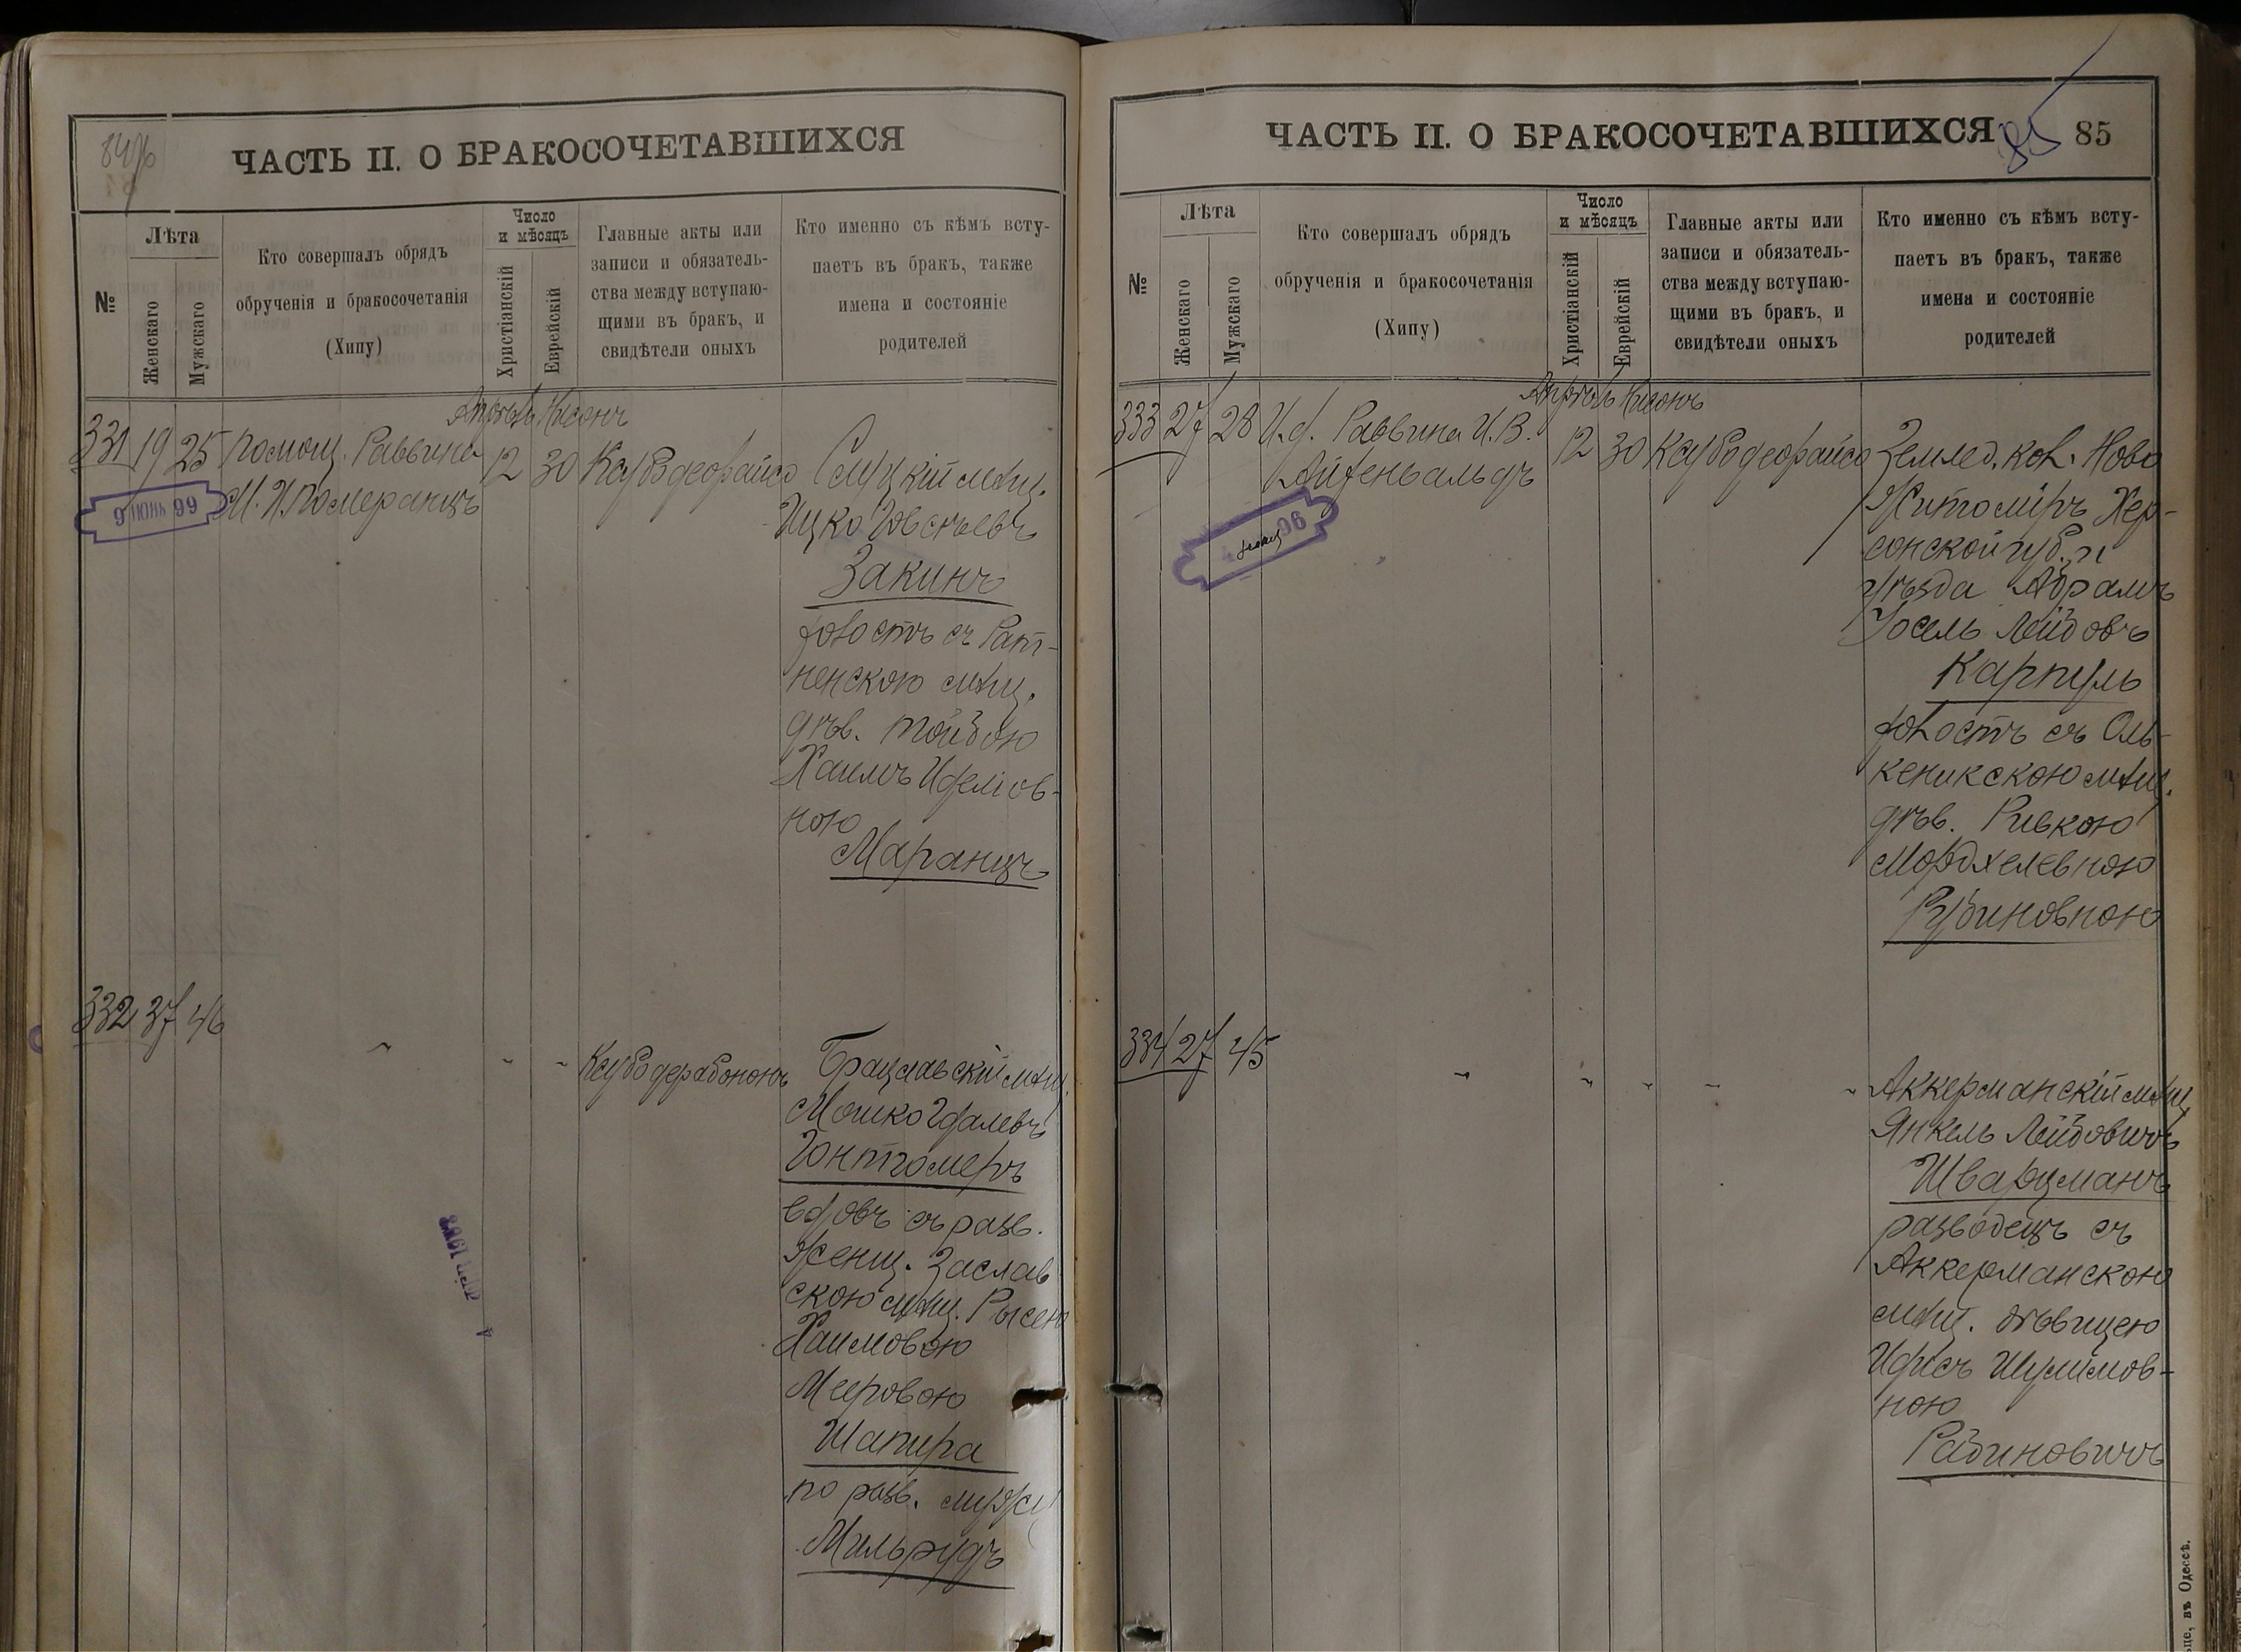 84/б
ЧАСТЬ II. О БРАКОСОЧЕТАВШИХСЯ
№
Лѣта
Женскаго
Мужскаго
Кто совершалъ обрядъ
обрученія и бракосочетанія
(Хипу)
Число
и мѣсяцъ
Христіанскій
Еврейскій
Главные акты или
записи и обязатель-
ства между вступаю-
щими въ бракъ, и
свидѣтели оныхъ
Кто именно съ кѣмъ всту-
паетъ въ бракъ, также
имена и состояніе
родителей
Апрѣль Нисонъ
331 19 25 Помощ. Раввина 12 30 Ксубодеорайсо Слуцкій мѣщ.
9 ИЮНЬ 99
М. И. Померанцъ
Ицко Іовсѣевъ
Закинъ
холостъ съ Рат-
ненскою мѣщ.
дѣв. Тойбою
Хаимъ Иделіов-
ною
Маранцъ
332 37 46 " " " Ксубодерабононъ Брацлавскій мѣщ.
Мошко Удалевъ
Гонтгомеръ
вдовъ съ разв.
женщ. Заслав
скою мѣщ. Рысею
Хаимовою
Мееровою
Шапира
по разв. мужу
Мильрудъ
ЧАСТЬ II. О БРАКОСОЧЕТАВШИХСЯ 85 85
№
Лѣта
Женскаго
Мужскаго
Кто совершалъ обрядъ
обрученія и бракосочетанія
(Хипу)
Число
и мѣсяцъ
Христіанскій
Еврейскій
Главные акты или
записи и обязатель-
ства между вступаю-
щими въ бракъ, и
свидѣтели оныхъ
Кто именно съ кѣмъ всту-
паетъ въ бракъ, также
имена и состояніе
родителей
Апрѣль Нисонъ
333 27 28 И. д. Раввина И. В. 12 30 Ксубодеорайсо Землед. кол. Ново
Айхенвальдъ
Житоміръ Хер-
сонской губ. и
уѣзда Абрамъ
Іосель Лейбовъ
Карпуль
холостъ съ Оль-
кеникскою мѣщ.
дѣв. Ривкою
Мордхелевною
Рубиновною
334 27 45 " " " " " Аккерманскій мѣщ
Янкель Лейбовичъ
Шварцманъ
разводецъ съ
Аккерманскою
мѣщ. дѣвицею
Идисъ Шулимов-
ною
Рабиновичъ
въ Одессѣ.